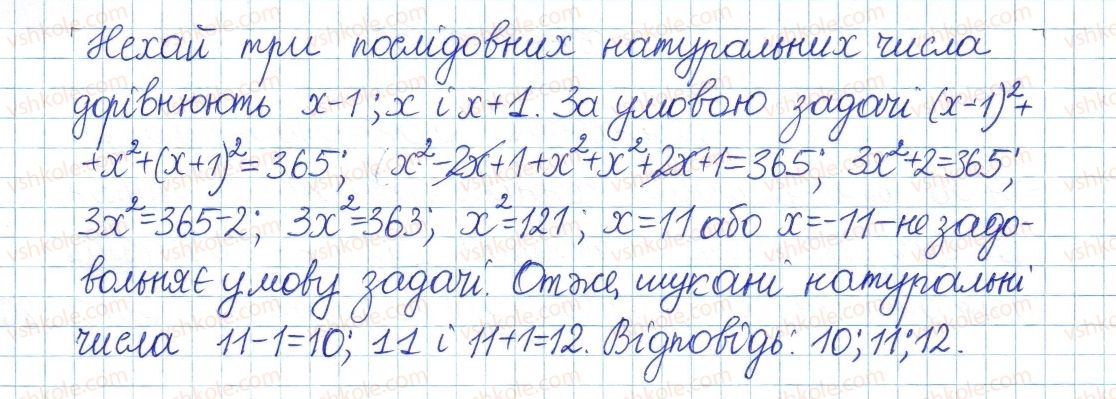 Нехай три послідовних натуральних числа
дорівнюють x-1; x і x+1. За умовою задачі (x-1)²+
+x²+(x+1)²=365; x²-2x+1+x²+x²+2x+1=365; 3x²+2=365;
3x²=365-2; 3x²=363; x²=121; x=11 або x=-11-не задо-
вольняє умову задачі. Отже, шукані натуральні
числа 11-1=10; 11 і 11+1=12. Відповідь: 10; 11; 12.